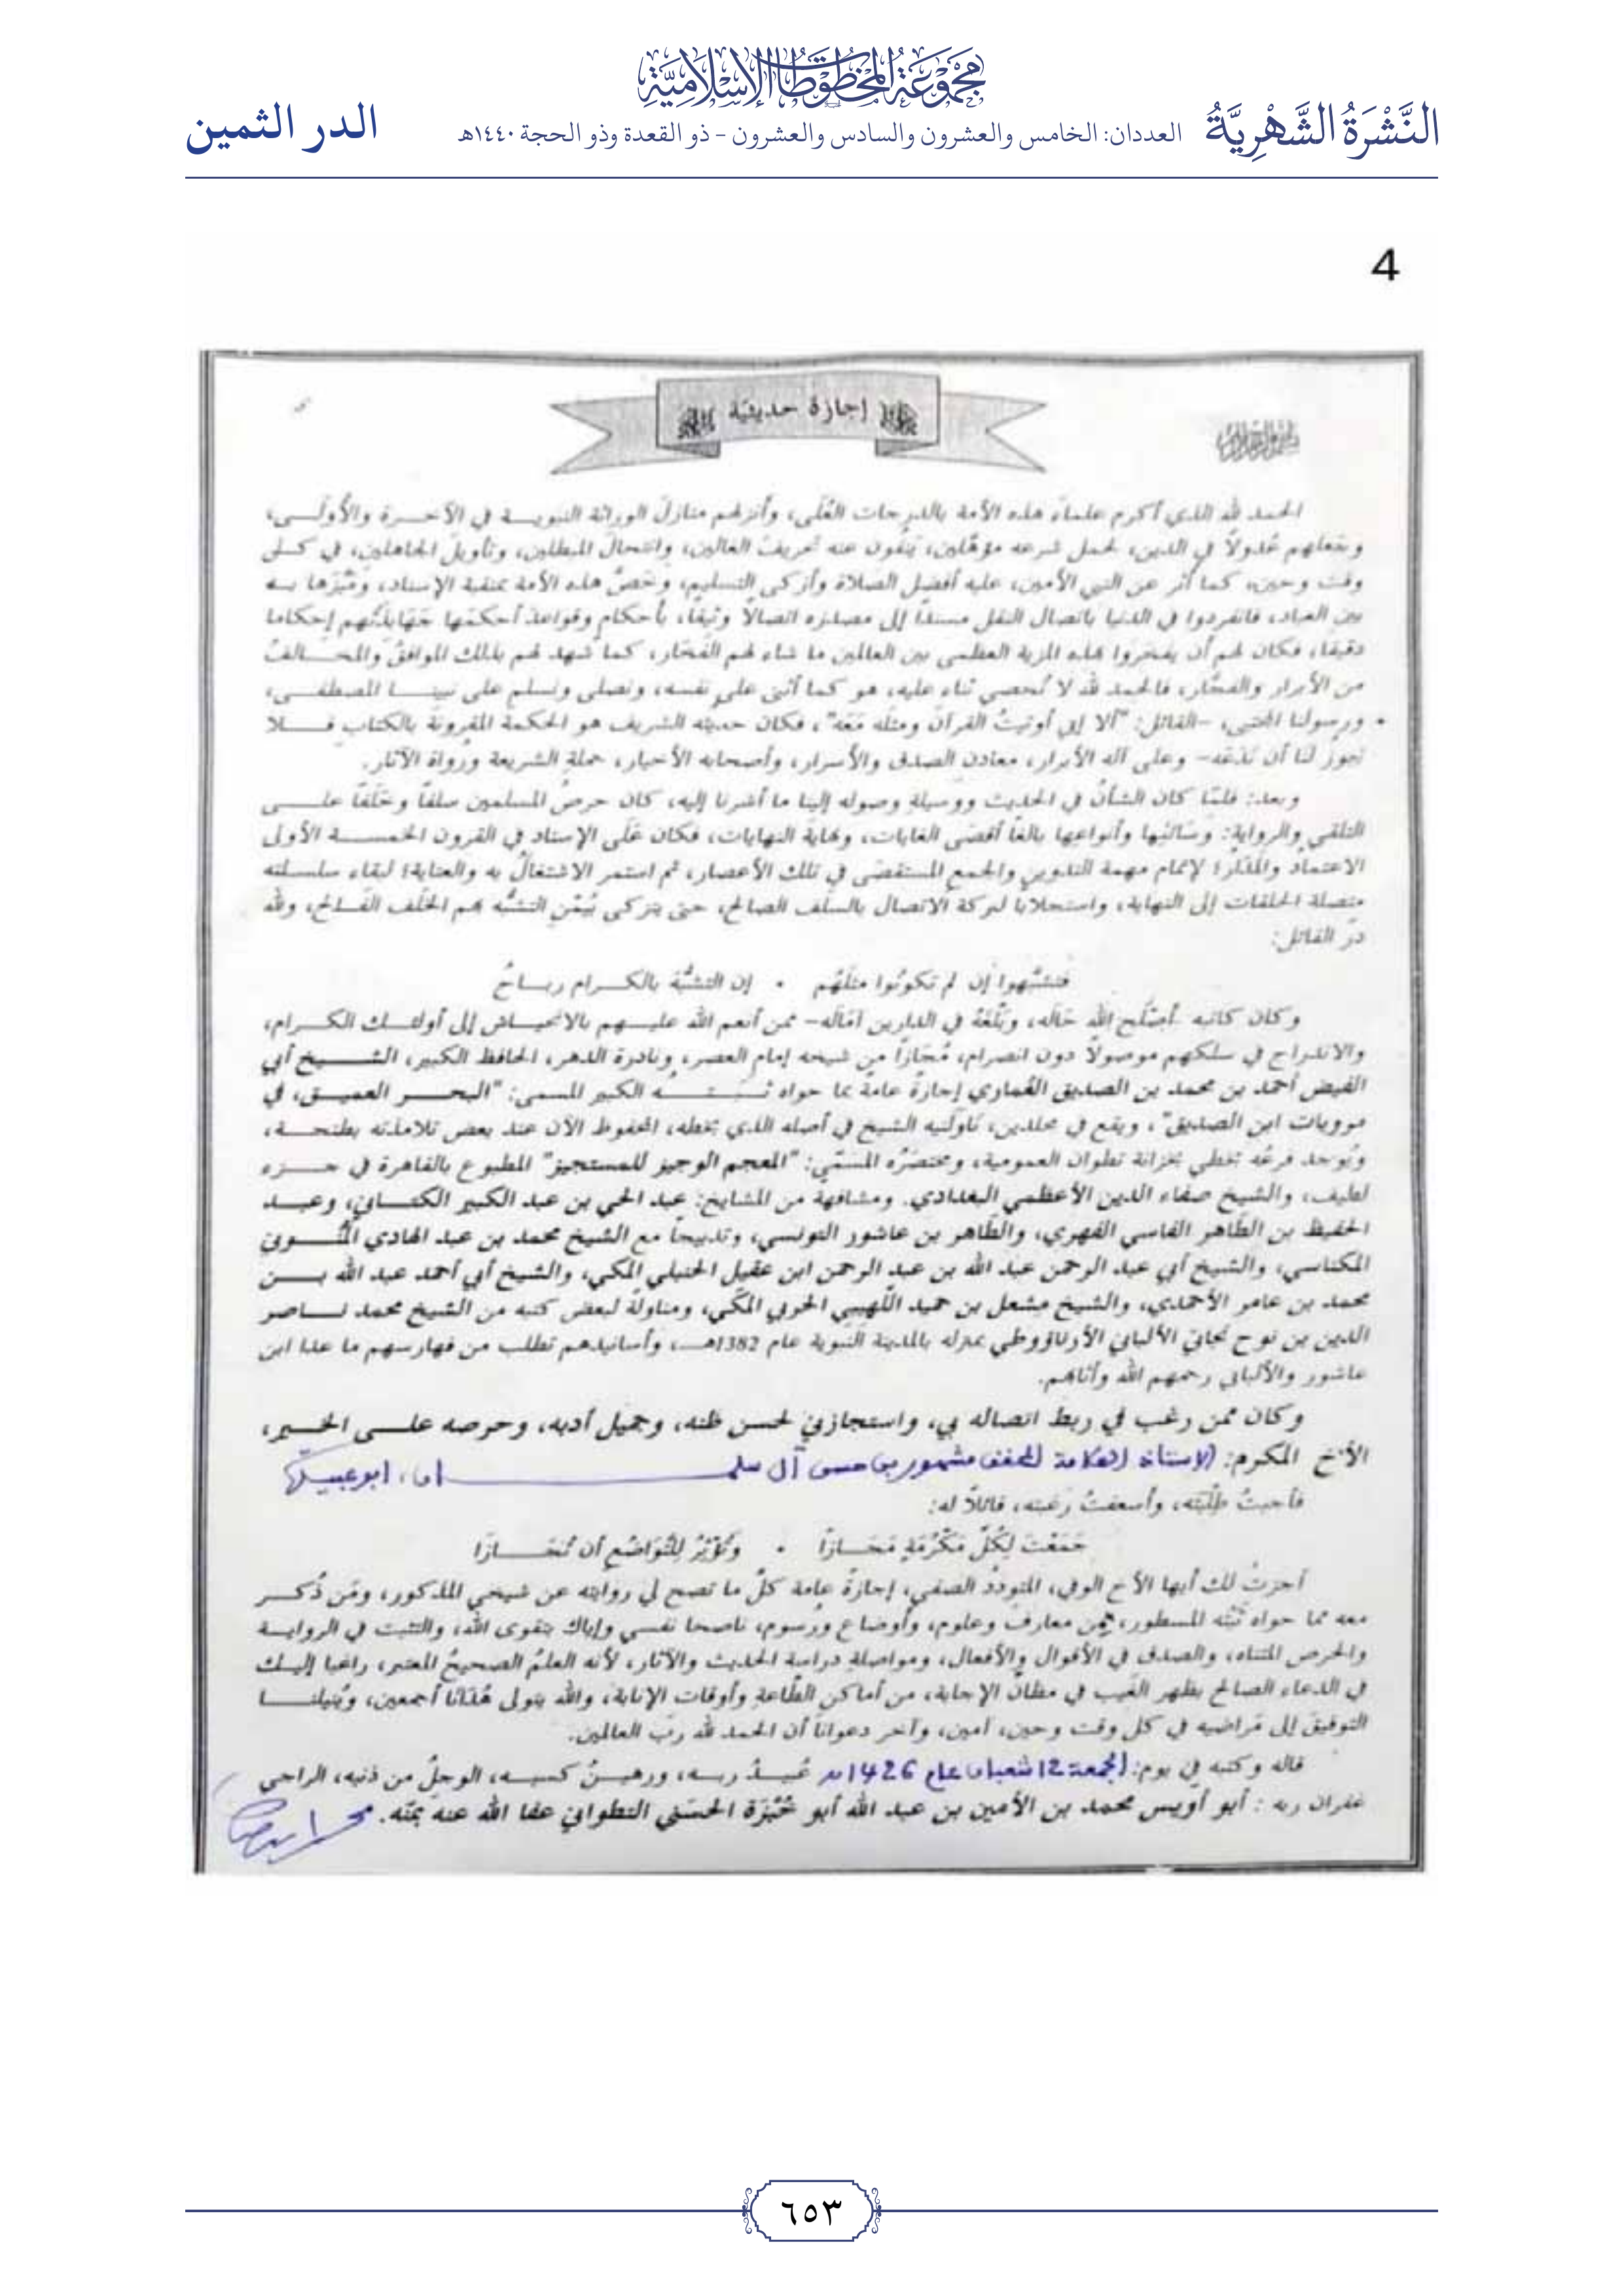 مجموعة المخطوطات الإسلامية
النَّشْرَةُ الشَّهْرِيَّةُ العددان: الخامس والعشرون والسادس والعشرون - ذو القعدة وذو الحجة ١٤٤٠هـ الدر الثمين
4
إجازة حديثية
الحمد لله الذي أكرم علماء هذه الأمة بالدرجات العُلَى، وأنزلهم منازلَ الوراثة النبويـــة في الآخـــرة والأُولَـــى،
وجعلهم عُدولاً في الدين، لحمل شرعه مؤهَّلين، يَنفُون عنه تحريفَ الغالين، وانتحالَ المبطلين، وتأويلَ الجاهلين، في كـــل
وقت وحين، كما أُثر عن النبي الأمين، عليه أفضل الصلاة وأزكى التسليم، وخَصَّ هذه الأمة بمنقبة الإسناد، ومَيَّزها بـــه
بين العباد، فانفردوا في الدنيا باتصال النقل مسنداً إلى مصدره اتصالاً وثيقاً، بأحكام وقواعدَ أحكمَها جَهَابِذَتُهم إحكاما
دقيقا، فكان لهم أن يفخروا بهذه المزية العظمى بين العالمين ما شاء لهم الفَخَار، كما شهد لهم بذلك الموافقُ والمخـــالفُ
من الأبرار والفجَّار، فالحمد لله لا نُحصي ثناء عليه، هو كما أثنى على نفسه، ونصلى ونسلم على نبينـــا المصطفـــى،
ورسولنا المجتبى، -القائل: "ألا إني أوتيتُ القرآنَ ومثلَه مَعَه"، فكان حديثه الشريف هو الحكمةَ المقرونةَ بالكتاب فـــلا
يجوز لنا أن نَدَعَه- وعلى آله الأبرار، معادن الصدق والأسرار، وأصحابه الأخيار، حملة الشريعة ورُواة الآثار.
وبعد: فلمّا كان الشأنُ في الحديث ووسيلةِ وصوله إلينا ما أشرنا إليه، كان حرصُ المسلمين سلفاً وخَلَفاً علـــى
التلقي والرواية: وسائلِها وأنواعِها بالغاً أقصَى الغايات، ونهايةَ النهايات، فكان عَلَى الإسناد في القرون الخمســـة الأولى
الاعتمادُ والمدَارُ؛ لإتمام مهمة التدوين والجمع المستقصَى في تلك الأعصار، ثم استمر الاشتغالُ به والعنايةُ؛ لبقاء سلســـلته
متصلة الحلقات إلى النهاية، واستجلابا لبركة الاتصال بالسلف الصالح، حتى يتزكى بُيمْنِ التشبُّه بهم الخلَف الفَـــالح، ولله
درّ القائل:
فتشبَّهوا إن لم تكونُوا مثلَهُم • إن التشبُّهَ بالكـــرام ربـــاحُ
وكان كاتبه -أصْلَح الله حَالَه، وبَلَّغَهُ في الدارين آمَالَه- ممن أنعم الله عليـــهم بالانحيـــاش إلى أولئـــك الكـــرام،
والاندراج في سلكهم موصولاً دون انصرام، مُجَازاً من شيخه إمام العصر، ونادرة الدهر، الحافظ الكبير، الشـــيخ أبي
الفيض أحمد بن محمد بن الصديق الغُماري إجازةً عامةً بما حواه ثَبَـــتُـــه الكبير المسمى: "البحـــر العميـــق، في
مرويات ابن الصديق"، ويقع في مجلدين، ناولَنيه الشيخ في أصله الذي بخطه، المحفوظ الآن عند بعض تلامذته بطنجـــة،
وتُوجد فرعُه بخطي بخزانة تطوان العمومية، ومختصَرُه المسَمّى: "المعجم الوجيز للمستجيز" المطبوع بالقاهرة في جـــزء
لطيف، والشيخ صفاء الدين الأعظمي البغدادي. ومشافهة من المشايخ: عبد الحي بن عبد الكبير الكتـــاني، وعبـــد
الحفيظ بن الطَّاهر الفاسي الفهري، والطَّاهر بن عاشور التونسي، وتدبيجاً مع الشيخ محمد بن عبد الهادي المَنُّـــوني
المكناسي، والشيخ أبي عبد الرحمن عبد الله بن عبد الرحمن ابن عقيل الحنبلي المكي، والشيخ أبي أحمد عبد الله بـــن
محمد بن عامر الأحمدي، والشيخ مشعل بن حميد اللَّهيبي الحربي المكّي، ومناولةً لبعض كتبه من الشيخ محمد نـــاصر
الدين بن نوح نجاتي الألباني الأرناؤوطي بمنزله بالمدينة النبوية عام 1382هـ، وأسانيدهم تطلب من فهارسهم ما عدا ابن
عاشور والألباني رحمهم الله وأثابهم.
وكان ممن رغب في ربط اتصاله بي، واستجازنيْ لحسن ظنه، وجميل أدبه، وحرصه علـــى الخـــير،
الأخ المكرم: الأستاذ العلامة المحقق مشهور بن حسن آل سلمـــان، أبو عبيدة
فأجبتُ طِلْبَته، وأسعفتُ رَغبته، قائلاً له:
جَمَعْتَ لِكُلِّ مَكْرُمَةٍ مَجَـــازًا • وَتُؤْثِرُ لِلتَّوَاضُعِ أن تُجَـــازَا
أجزتُ لك أيها الأخ الوفي، المتودِّدُ الصفي، إجازةً عامة كلَّ ما تصح لي روايته عن شيخي المذكور، ومَن ذُكـــر
معه مما حواه ثَبْتُه المسطور، مِن معارفَ وعلوم، وأوضاع ورُسوم، ناصحا نفسي وإياك بتقوى الله، والتثبت في الروايـــة
والحرص المتناه، والصدق في الأقوال والأفعال، ومواصلة دراسة الحديث والآثار، لأنه العلمُ الصحيحُ المعتبر، راغبا إليـــك
في الدعاء الصالح بظهر الغَيب في مظانِّ الإجابة، من أماكنِ الطَّاعةِ وأوقات الإنابة، والله يتولى هُدَانَا أجمعين، ويُنيلنـــا
التوفيقَ إلى مَراضيه في كل وقت وحين، آمين، وآخر دعوانا أن الحمد لله ربّ العالمين.
قاله وكتبه في يوم: الجمعة 12 شعبان عام 1426هـ عُبيـــدُ ربـــه، ورهيـــنُ كسبـــه، الوجلُ من ذنبه، الراجي
غفران ربه: أبو أويس محمد بن الأمين بن عبد الله أبو خُبْزَة الحسَني التطوانيْ عفا الله عنه بمَنّه.
٦٥٣